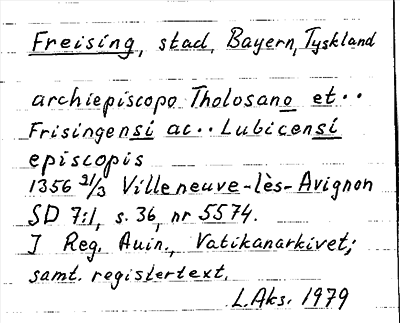 Freising, stad, Bayern, Tyskland
archiepiscopo Tholosano et··
Frisingensi ac·· Lubicensi
episcopis
1356 21/3 Villeneuve-lès-Avignon
SD 7:1, s. 36, nr 5574.
I Reg. Auin., Vatikanarkivet;
samt. registertext.
L.Aks. 1979